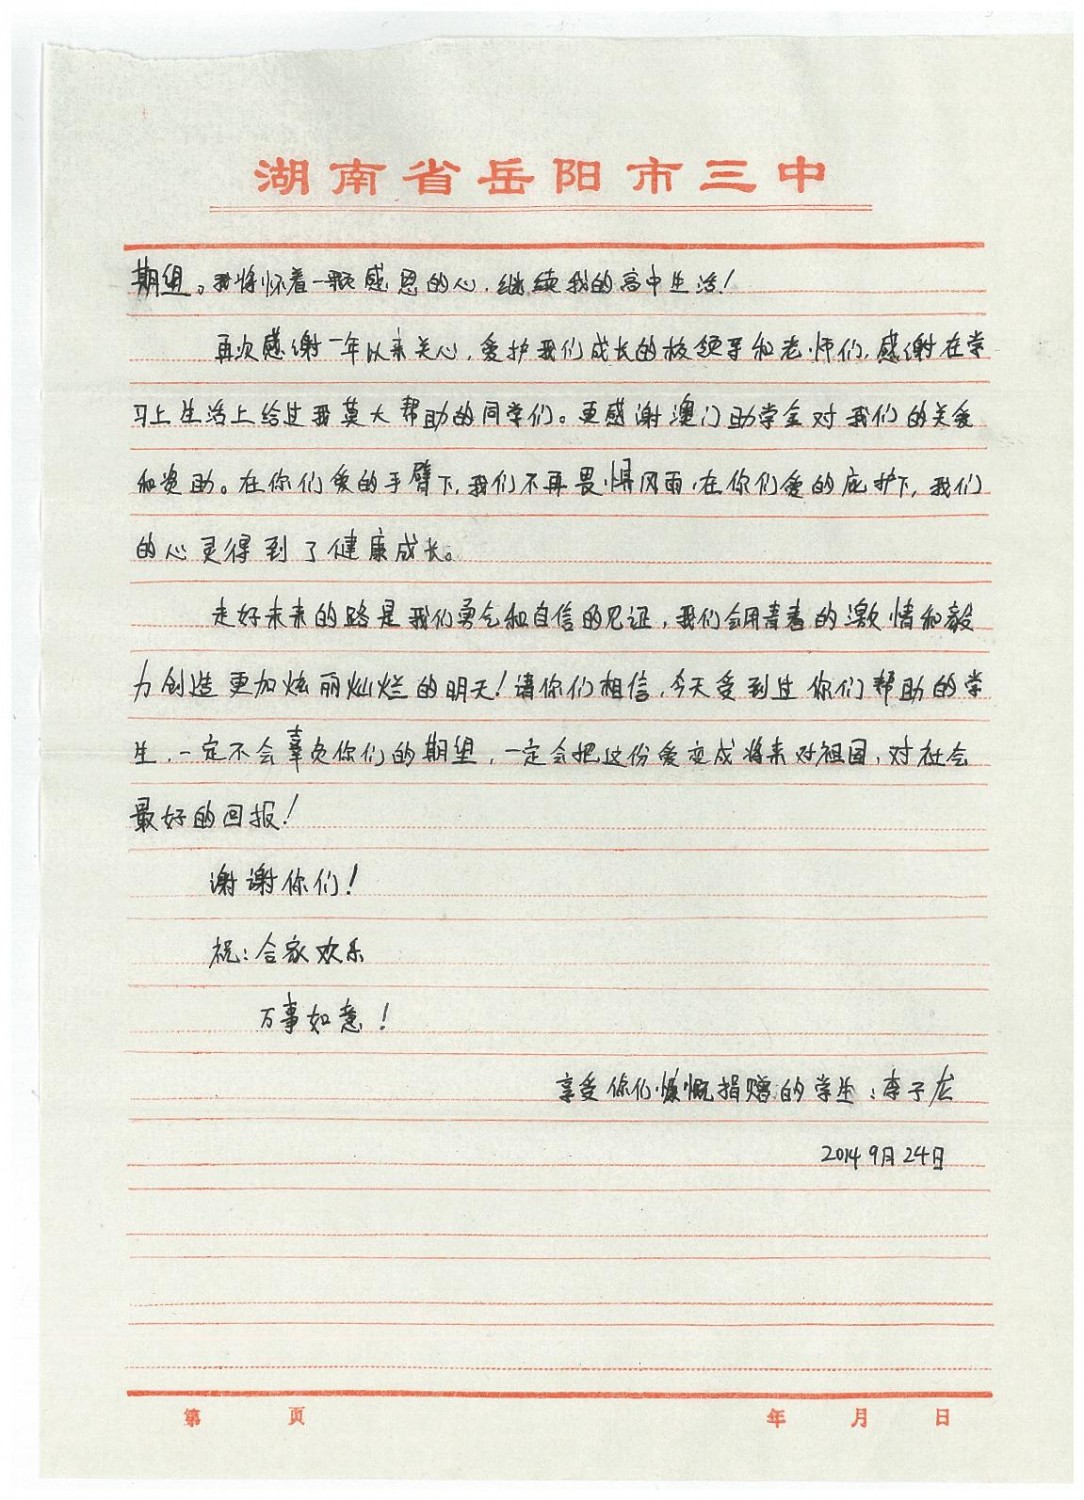 湖南省岳阳市三中
期望。我将怀着一颗感恩的心，继续我的高中生活！
再次感谢一年以来关心，爱护我们成长的校领导和老师们，感谢在学
习上生活上给过我莫大帮助的同学们。更感谢澳门助学金对我们的关爱
和资助。在你们爱的手臂下，我们不再畏惧风雨，在你们爱的庇护下，我们
的心灵得到了健康成长。
走好未来的路是我们勇气和自信的见证，我们会用青春的激情和毅
力创造更加炫丽灿烂的明天！请你们相信，今天受到过你们帮助的学
生，一定不会辜负你们的期望，一定会把这份爱变成将来对祖国，对社会
最好的回报！
谢谢你们！
祝：合家欢乐
万事如意！
享受你们慷慨捐赠的学生：李子龙
2014 9月24日
第 页 年 月 日